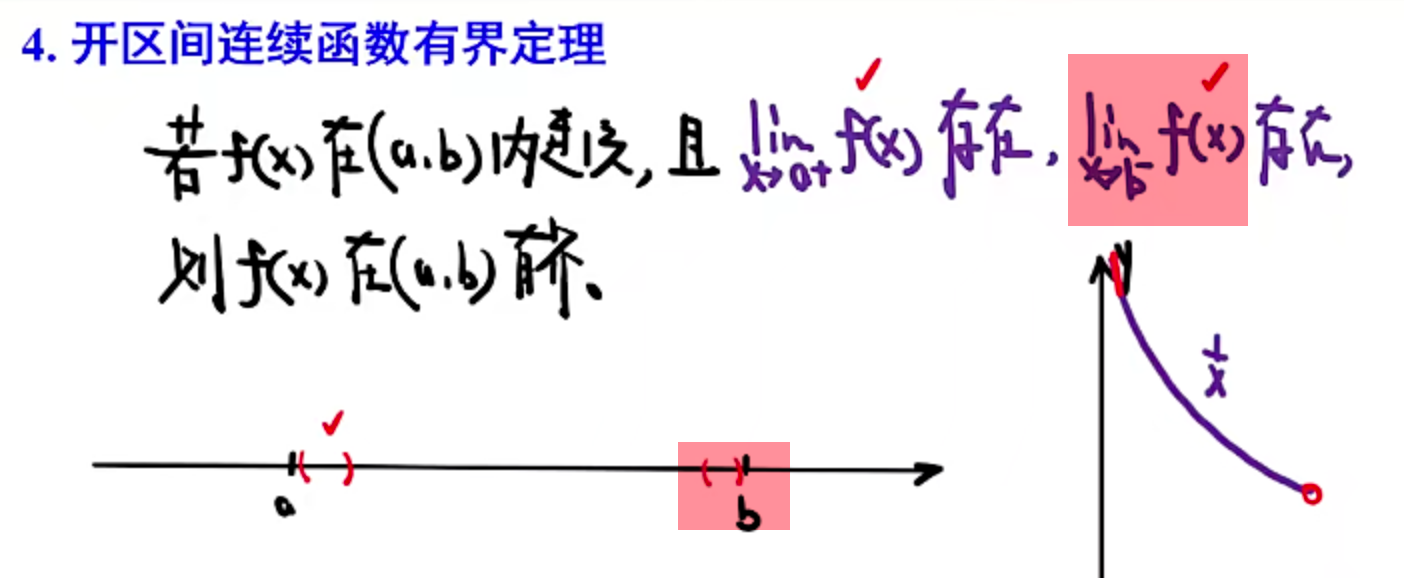 4. 开区间连续函数有界定理
若f(x)在(a.b)内连续,且 lim x→a+ f(x) 存在, lim x→b- f(x) 存在,
则f(x)在(a.b)有界.
y
1/x
a
b